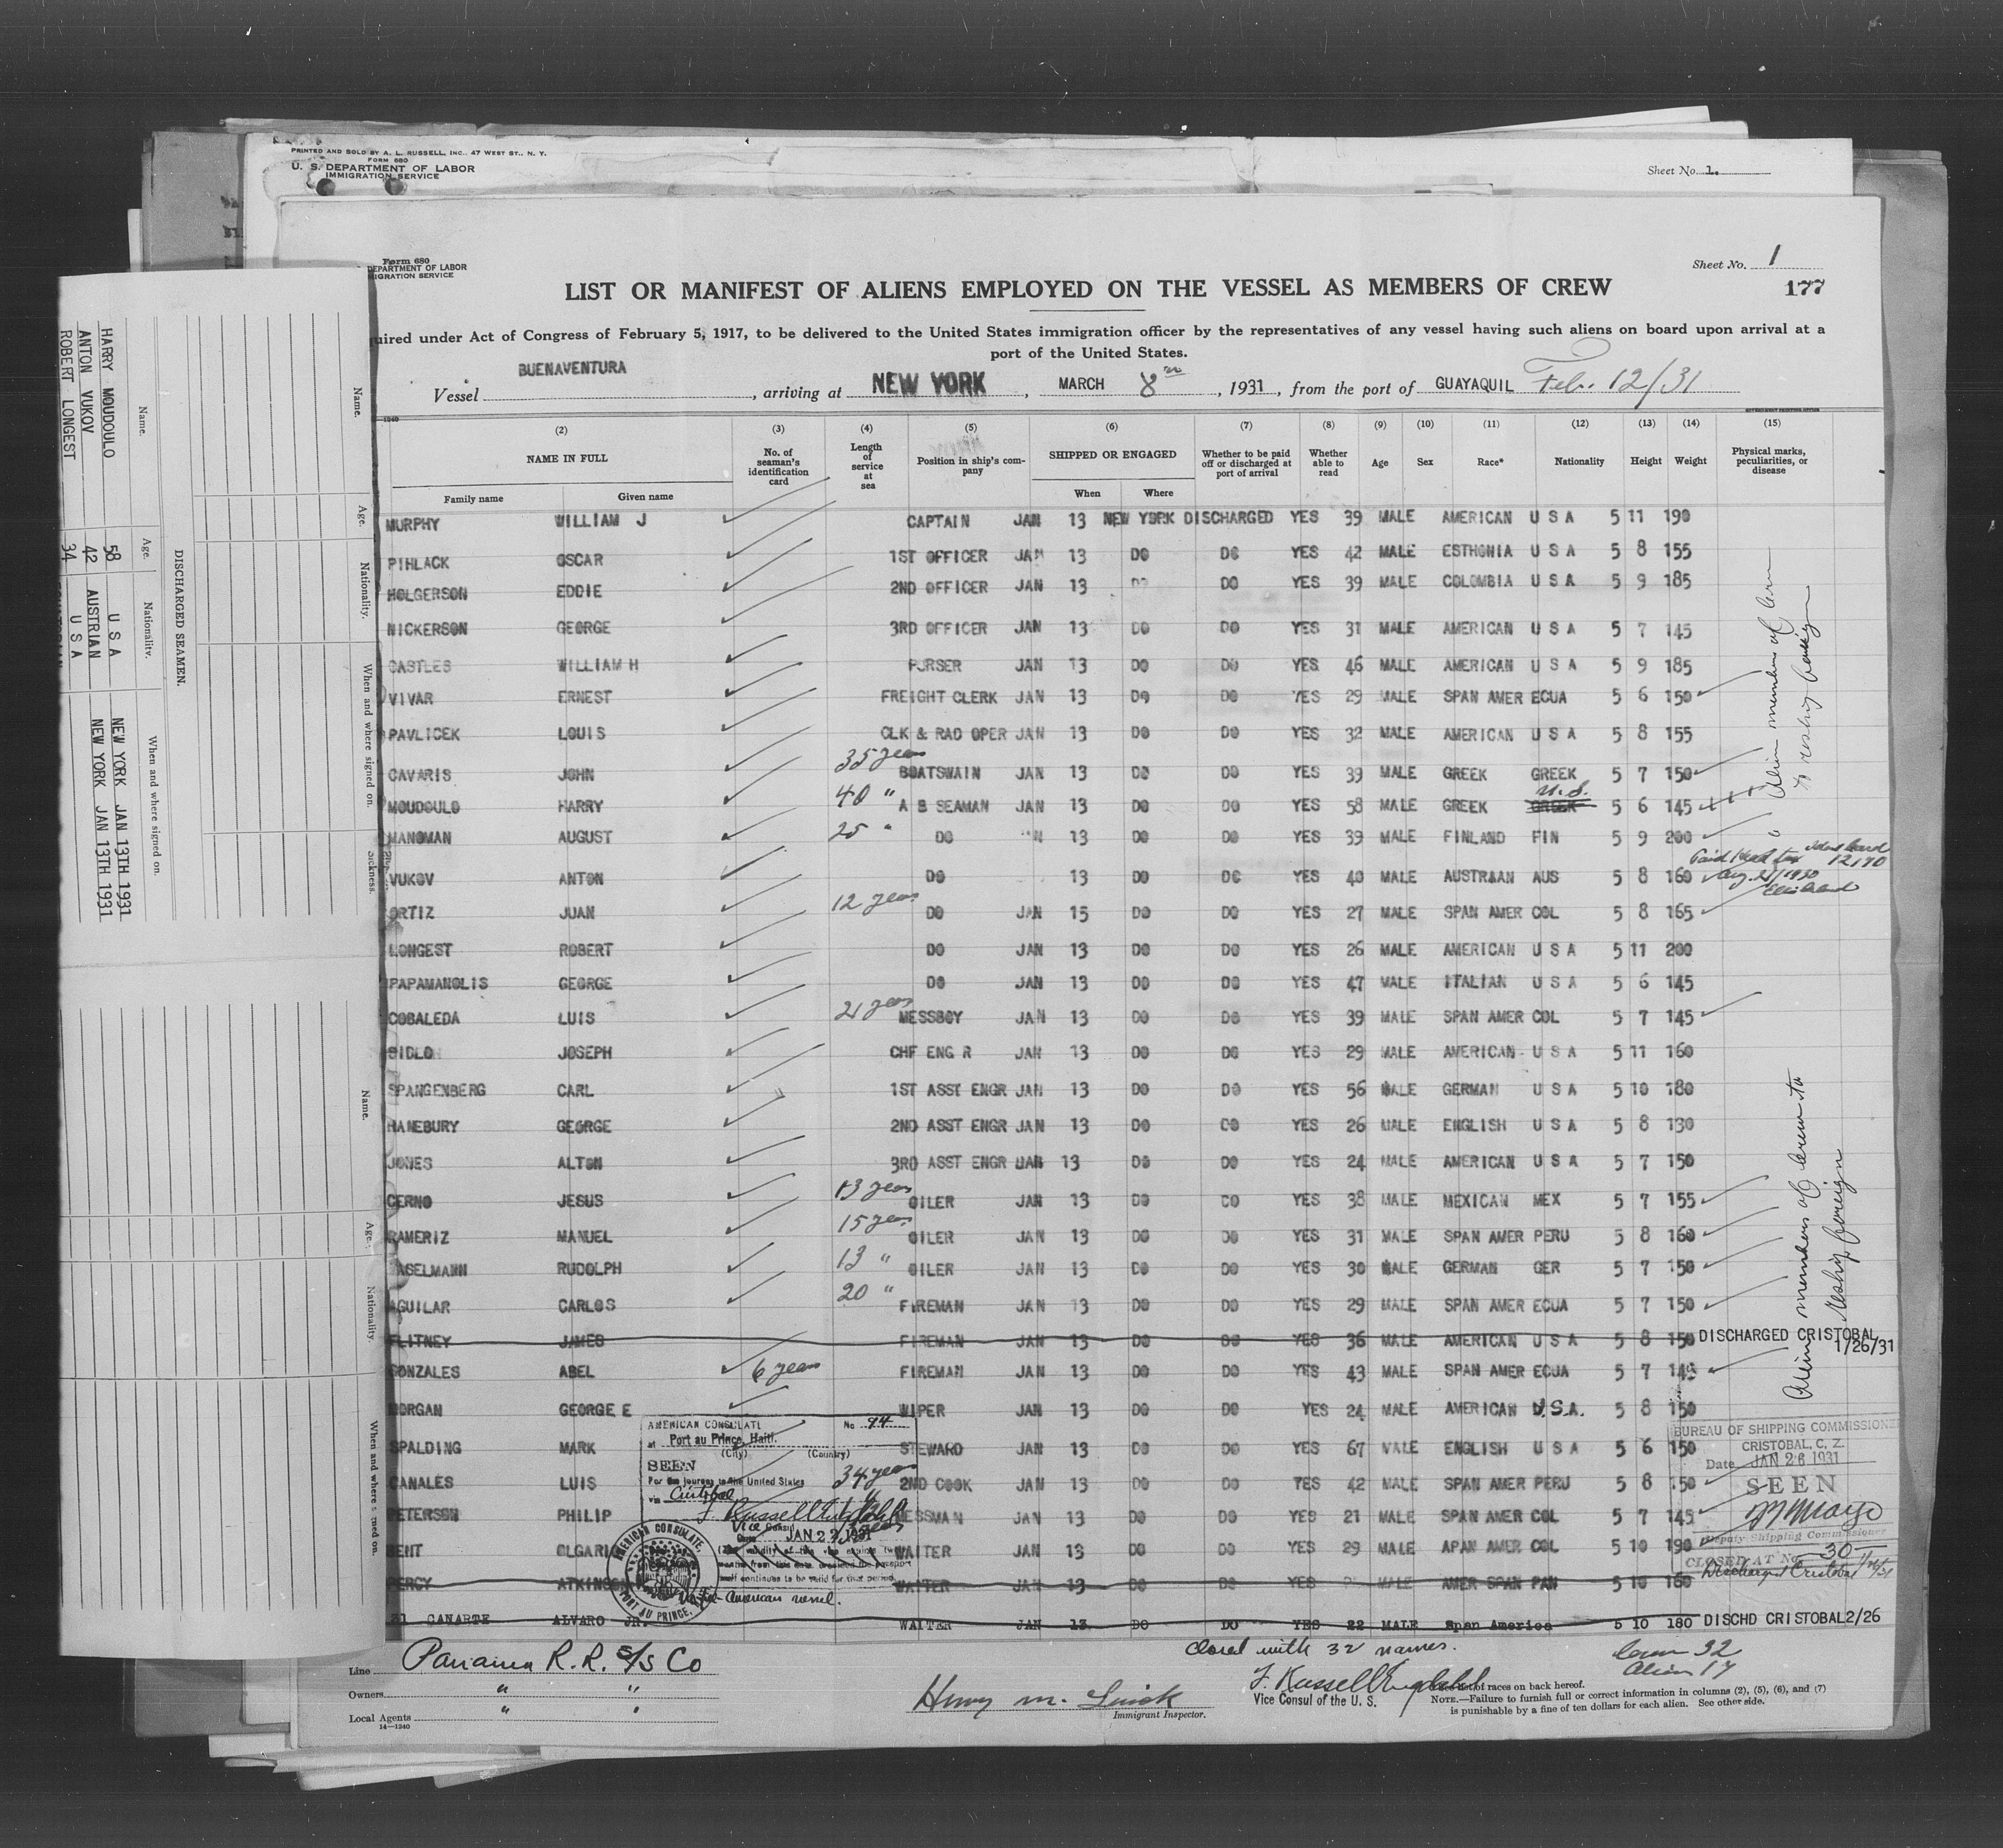 PRINTED AND SOLD BY A. L. RUSSELL, INC., 47 WEST ST., N. Y.
FORM 680
U. S. DEPARTMENT OF LABOR
IMMIGRATION SERVICE
Sheet No. 1.
Form 680
DEPARTMENT OF LABOR
IGRATION SERVICE
Sheet No. 1
177
LIST OR MANIFEST OF ALIENS EMPLOYED ON THE VESSEL AS MEMBERS OF CREW
uired under Act of Congress of February 5, 1917, to be delivered to the United States immigration officer by the representatives of any vessel having such aliens on board upon arrival at a
port of the United States.
Vessel BUENAVENTURA, arriving at NEW YORK, MARCH 8th, 1931, from the port of GUAYAQUIL Feb. 12/31
(2) (3) (4) (5) (6) (7) (8) (9) (10) (11) (12) (13) (14) (15)
NAME IN FULL No. of seaman's identification card Length of service at sea Position in ship's company SHIPPED OR ENGAGED Whether to be paid off or discharged at port of arrival Whether able to read Age Sex Race* Nationality Height Weight Physical marks, peculiarities, or disease
Family name Given name When Where
MURPHY WILLIAM J CAPTAIN JAN 13 NEW YORK DISCHARGED YES 39 MALE AMERICAN U S A 5 11 190
PIHLACK OSCAR 1ST OFFICER JAN 13 DO DO YES 42 MALE ESTHONIA U S A 5 8 155
HOLGERSON EDDIE 2ND OFFICER JAN 13 DO DO YES 39 MALE COLOMBIA U S A 5 9 185
NICKERSON GEORGE 3RD OFFICER JAN 13 DO DO YES 31 MALE AMERICAN U S A 5 7 145
CASTLES WILLIAM H PURSER JAN 13 DO DO YES 46 MALE AMERICAN U S A 5 9 185
VIVAR ERNEST FREIGHT CLERK JAN 13 DO DO YES 29 MALE SPAN AMER ECUA 5 6 150
PAVLICEK LOUIS CLK & RAD OPER JAN 13 DO DO YES 32 MALE AMERICAN U S A 5 8 155
CAVARIS JOHN 35 years BOATSWAIN JAN 13 DO DO YES 39 MALE GREEK GREEK 5 7 150
MOUDOULO HARRY 40 " A B SEAMAN JAN 13 DO DO YES 58 MALE GREEK GREEK U.S. 5 6 145
MANOMAN AUGUST 25 " DO JAN 13 DO DO YES 39 MALE FINLAND FIN 5 9 200
VUKOV ANTON DO 13 DO DO YES 40 MALE AUSTRAAN AUS 5 8 160 Paid Head tax Aug. 21/1930 Ident Card 12190
ORTIZ JUAN 12 years DO JAN 15 DO DO YES 27 MALE SPAN AMER COL 5 8 165
LONGEST ROBERT DO JAN 13 DO DO YES 26 MALE AMERICAN U S A 5 11 200
PAPAMANOLIS GEORGE DO JAN 13 DO DO YES 47 MALE ITALIAN U S A 5 6 145
COBALEDA LUIS 21 years MESSBOY JAN 13 DO DO YES 39 MALE SPAN AMER COL 5 7 145
SIDLO JOSEPH CHF ENG R JAN 13 DO DO YES 29 MALE AMERICAN U S A 5 11 160
SPANGENBERG CARL 1ST ASST ENGR JAN 13 DO DO YES 56 MALE GERMAN U S A 5 10 180
HANEBURY GEORGE 2ND ASST ENGR JAN 13 DO DO YES 26 MALE ENGLISH U S A 5 8 130
JONES ALTON 3RD ASST ENGR JAN 13 DO DO YES 24 MALE AMERICAN U S A 5 7 150
CERNO JESUS 13 years OILER JAN 13 DO DO YES 38 MALE MEXICAN MEX 5 7 155
RAMERIZ MANUEL 15 years OILER JAN 13 DO DO YES 31 MALE SPAN AMER PERU 5 8 160
ASELMANN RUDOLPH 13 " OILER JAN 13 DO DO YES 30 MALE GERMAN GER 5 7 150
AGUILAR CARLOS 20 " FIREMAN JAN 13 DO DO YES 29 MALE SPAN AMER ECUA 5 7 150
FLITNEY JAMES FIREMAN JAN 13 DO DO YES 36 MALE AMERICAN U S A 5 8 150 DISCHARGED CRISTOBAL 1/26/31
GONZALES ABEL 6 years FIREMAN JAN 13 DO DO YES 43 MALE SPAN AMER ECUA 5 7 145
MORGAN GEORGE E WIPER JAN 13 DO DO YES 24 MALE AMERICAN U.S.A. 5 8 150
SPALDING MARK STEWARD JAN 13 DO DO YES 67 MALE ENGLISH U S A 5 6 150
CANALES LUIS 34 years 2ND COOK JAN 13 DO DO YES 42 MALE SPAN AMER PERU 5 8 150
PETERSON PHILIP MESSMAN JAN 13 DO DO YES 21 MALE SPAN AMER COL 5 7 145
BENT OLGARI WAITER JAN 13 DO DO YES 29 MALE APAN AMER COL 5 10 190
PERCY ATKINSON WAITER JAN 13 DO DO YES MALE AMER SPAN PAN 5 10 160 Discharged Cristobal
31 CANARTE ALVARO JR. WAITER JAN 13 DO DO YES 22 MALE Span America 5 10 180 DISCHD CRISTOBAL2/26
Alien members of Crew to reship foreign
Alien members of Crew to reship foreign
AMERICAN CONSULATE No 94
at Port au Prince, Haiti.
(City) (Country)
SEEN
For the journey to the United States
via Cristobal
Vice Consul
Date JAN 22 1931
AMERICAN CONSULATE,
PORT AU PRINCE,
American vessel.
BUREAU OF SHIPPING COMMISSIONER
CRISTOBAL, C. Z.
Date JAN 26 1931
SEEN
Deputy Shipping Commissioner
CLOSED AT No. 30
Line Panama R. R. S/S Co
Owners " "
Local Agents " "
14—1240
Closed with 32 names.
Vice Consul of the U. S.
Immigrant Inspector.
Crew 32
Alien 17
of races on back hereof.
NOTE.—Failure to furnish full or correct information in columns (2), (5), (6), and (7)
is punishable by a fine of ten dollars for each alien. See other side.
DISCHARGED SEAMEN.
Name. Age. Nationality. When and where signed on.
HARRY MOUDOULO 58 U S A NEW YORK JAN 13TH 1931
ANTON VUKOV 42 AUSTRIAN NEW YORK JAN 13TH 1931
ROBERT LONGEST 34 U S A
Name. Age. Nationality. When and where signed on.
Sickness.
Name. Age. Nationality.